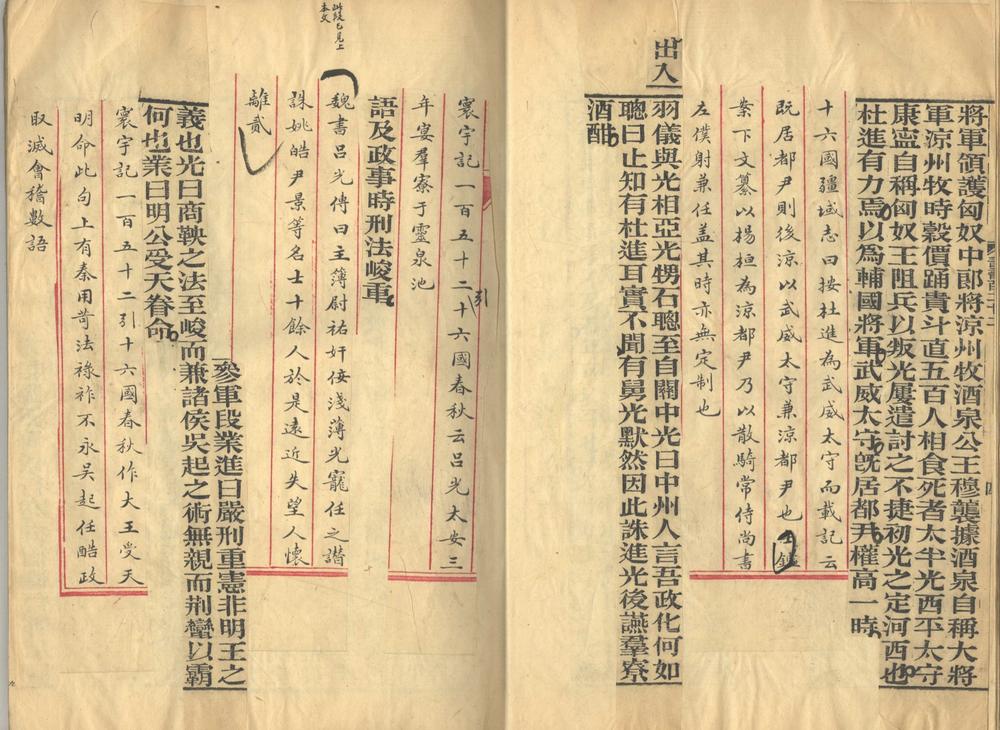 將軍領護匈奴中郎將涼州牧酒泉公王穆襲據酒泉自稱大將
軍涼州牧時穀價踊貴斗直五百人相食死者太半光西平太守
康寧自稱匈奴王阻兵以叛光屢遣討之不捷初光之定河西也
杜進有力焉以爲輔國將軍武威太守旣居都尹權高一時
十六國疆域志曰按杜進為武威太守而載記云
既居都尹則後涼以武威太守兼涼都尹也
案下文纂以楊桓為涼都尹乃以散騎常侍尚書
左僕射兼任盖其時亦無定制也
出入
羽儀與光相亞光甥石聰至自關中光曰中州人言吾政化何如
聰曰止知有杜進耳實不聞有舅光默然因此誅進光後讌羣寮
酒酣
寰宇記一百五十二引十六國春秋云呂光太安三
年宴羣寮于靈泉池
語及政事時刑法峻重
此段已見上
本文
魏書呂光傳曰主簿尉祐奸佞淺薄光寵任之譖
誅姚皓尹景等名士十餘人於是遠近失望人懷
離貳
參軍段業進曰嚴刑重憲非明王之
義也光曰商鞅之法至峻而兼諸侯吳起之術無親而荆蠻以霸
何也業曰明公受天眷命
寰宇記一百五十二引十六國春秋作大王受天
明命此句上有秦用苛法祿祚不永吳起任酷政
取滅會稽數語